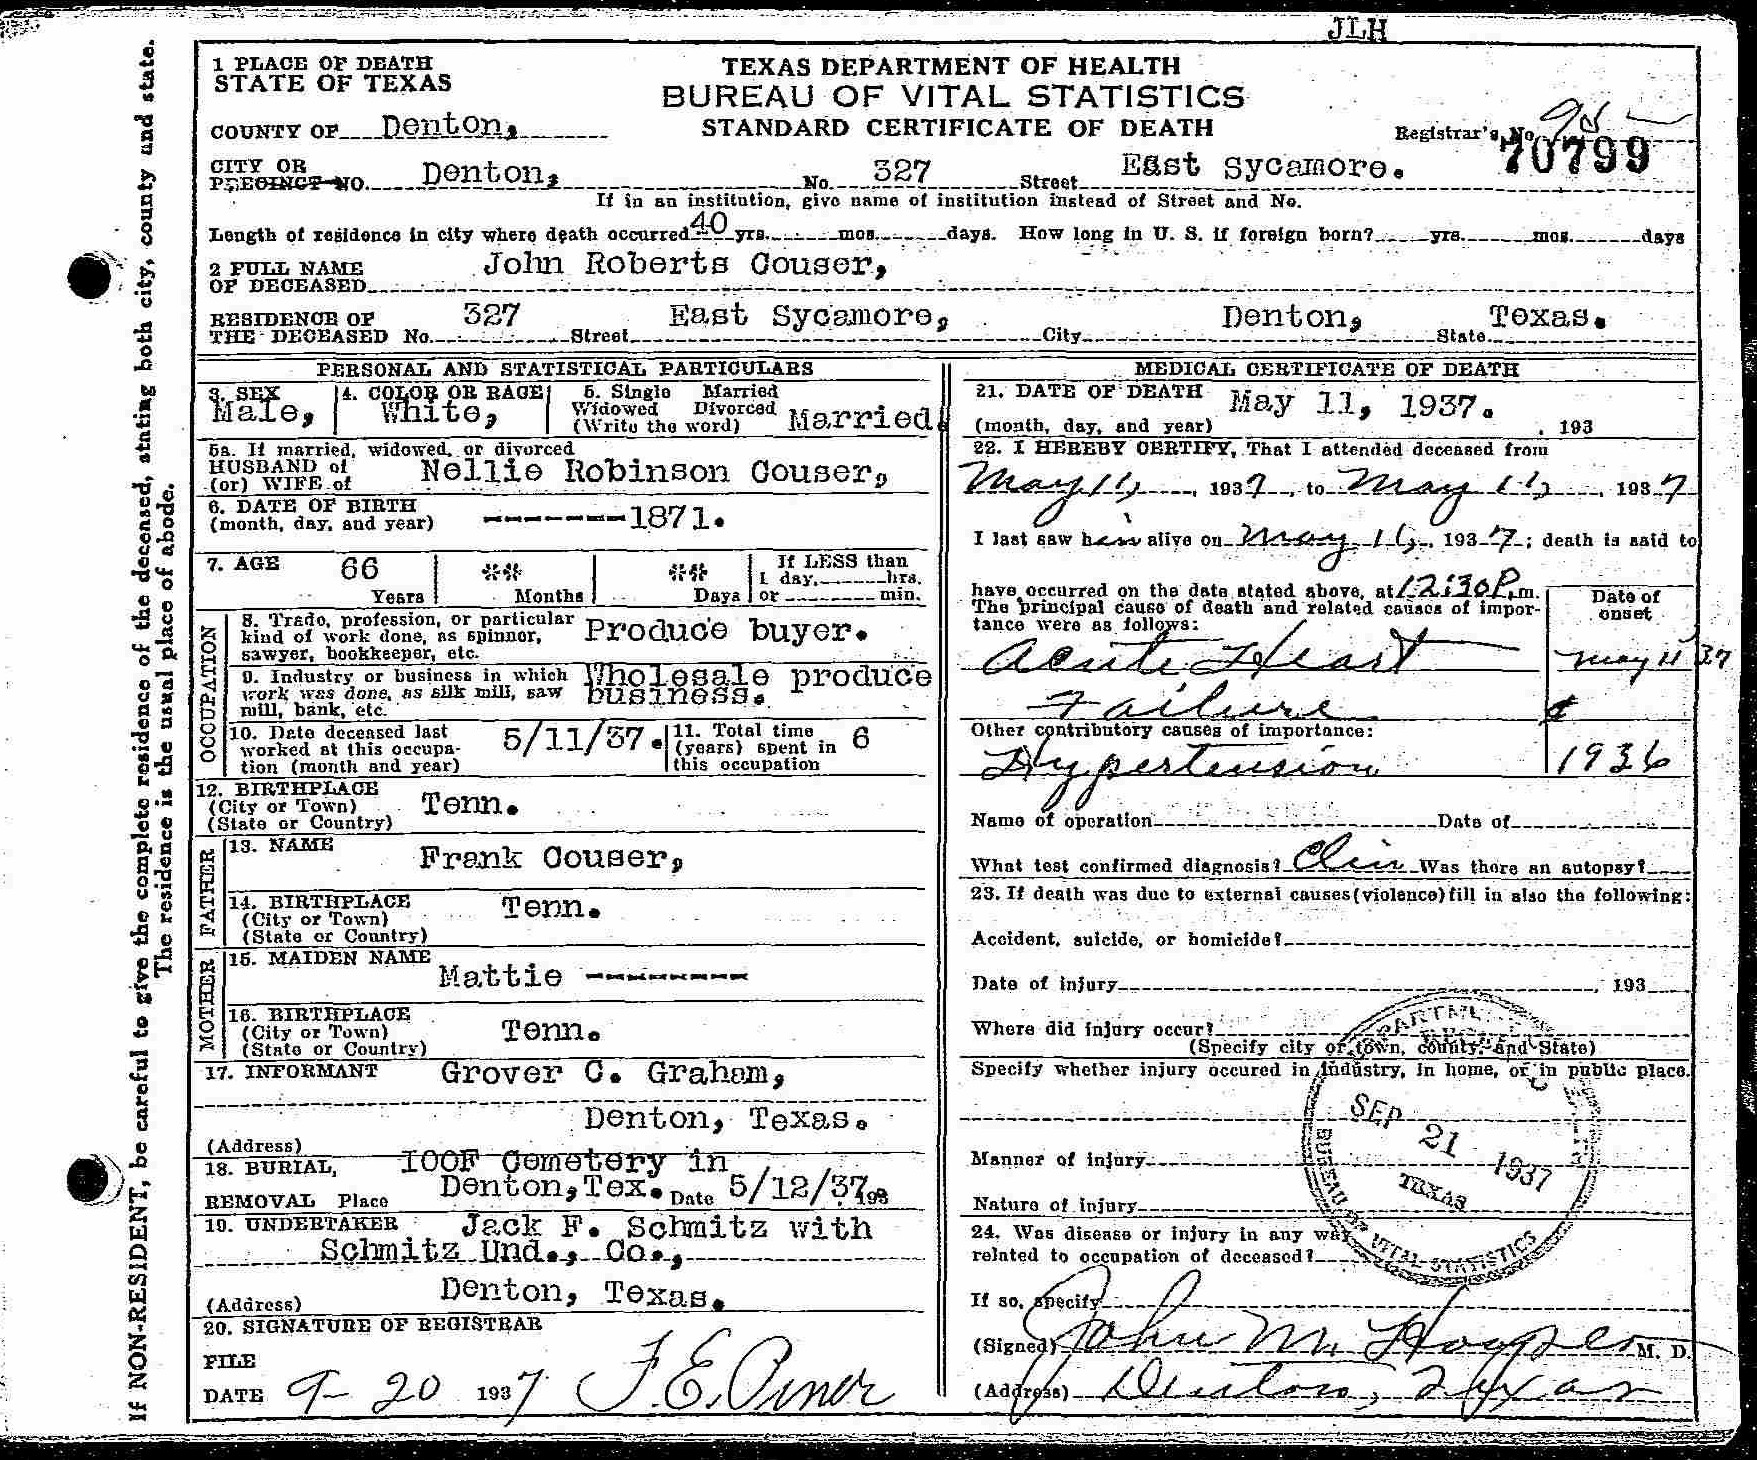 JLH
1 PLACE OF DEATH
STATE OF TEXAS
TEXAS DEPARTMENT OF HEALTH
BUREAU OF VITAL STATISTICS
STANDARD CERTIFICATE OF DEATH
COUNTY OF Denton,
Registrar's No.
70799
CITY OR
PRECINCT NO. Denton, No. 327 Street East Sycamore.
If in an institution, give name of institution instead of Street and No.
Length of residence in city where death occurred 40 yrs. mos. days. How long in U. S. if foreign born? yrs. mos. days
2 FULL NAME
OF DECEASED John Roberts Couser,
RESIDENCE OF
THE DECEASED No. 327 Street East Sycamore, City Denton, State Texas.
PERSONAL AND STATISTICAL PARTICULARS
3. SEX
Male,
4. COLOR OR RACE
White,
5. Single Married
Widowed Divorced
(Write the word) Married.
5a. If married, widowed, or divorced
HUSBAND of
(or) WIFE of Nellie Robinson Couser,
6. DATE OF BIRTH
(month, day, and year) -------1871.
7. AGE 66 Years ** Months ** Days
If LESS than
1 day, hrs.
or min.
OCCUPATION
8. Trade, profession, or particular
kind of work done, as spinner,
sawyer, bookkeeper, etc. Produce buyer.
9. Industry or business in which
work was done, as silk mill, saw
mill, bank, etc. Wholesale produce
business.
10. Date deceased last
worked at this occupa-
tion (month and year) 5/11/37.
11. Total time
(years) spent in
this occupation 6
12. BIRTHPLACE
(City or Town)
(State or Country) Tenn.
FATHER
13. NAME Frank Couser,
14. BIRTHPLACE
(City or Town)
(State or Country) Tenn.
MOTHER
15. MAIDEN NAME Mattie ---------
16. BIRTHPLACE
(City or Town)
(State or Country) Tenn.
17. INFORMANT Grover C. Graham,
(Address) Denton, Texas.
18. BURIAL,
REMOVAL Place IOOF Cemetery in
Denton,Tex. Date 5/12/37 193
19. UNDERTAKER Jack F. Schmitz with
Schmitz Und., Co.,
(Address) Denton, Texas.
20. SIGNATURE OF REGISTRAR
FILE
DATE 9-20 1937 F.E. Piner
MEDICAL CERTIFICATE OF DEATH
21. DATE OF DEATH May 11, 1937.
(month, day, and year) , 193
22. I HEREBY CERTIFY, That I attended deceased from
May 11, 1937, to May 11, 1937
I last saw him alive on May 11, 1937; death is said to
have occurred on the date stated above, at 12:30 P.m.
The principal cause of death and related causes of impor-
tance were as follows:
Date of
onset
Acute Heart
Failure
May 11 37
Other contributory causes of importance:
Hypertension 1936
Name of operation Date of
What test confirmed diagnosis? Clin Was there an autopsy?
23. If death was due to external causes (violence) fill in also the following:
Accident, suicide, or homicide?
Date of injury , 193
Where did injury occur?
(Specify city or town, county, and State)
Specify whether injury occured in industry, in home, or in public place.
Manner of injury
Nature of injury
24. Was disease or injury in any way
related to occupation of deceased?
If so, specify
(Signed) John M. Hooper M. D.
(Address) Denton, Texas
SEP 21 1937
TEXAS
BUREAU OF VITAL STATISTICS
If NON-RESIDENT, be careful to give the complete residence of the deceased, stating both city, county and state.
The residence is the usual place of abode.